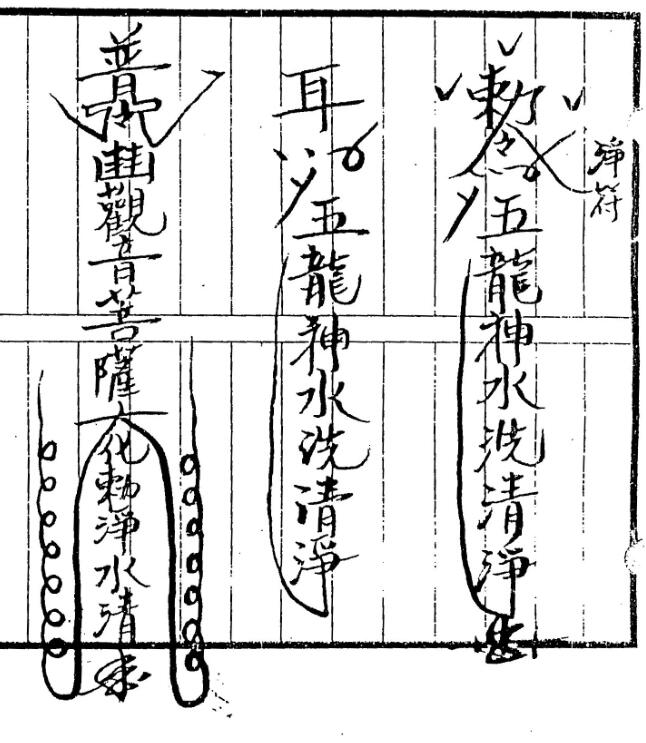 淨符
勅令五龍神水洗清淨
耳 五龍神水洗清淨
普 觀音菩薩六化勅淨水清